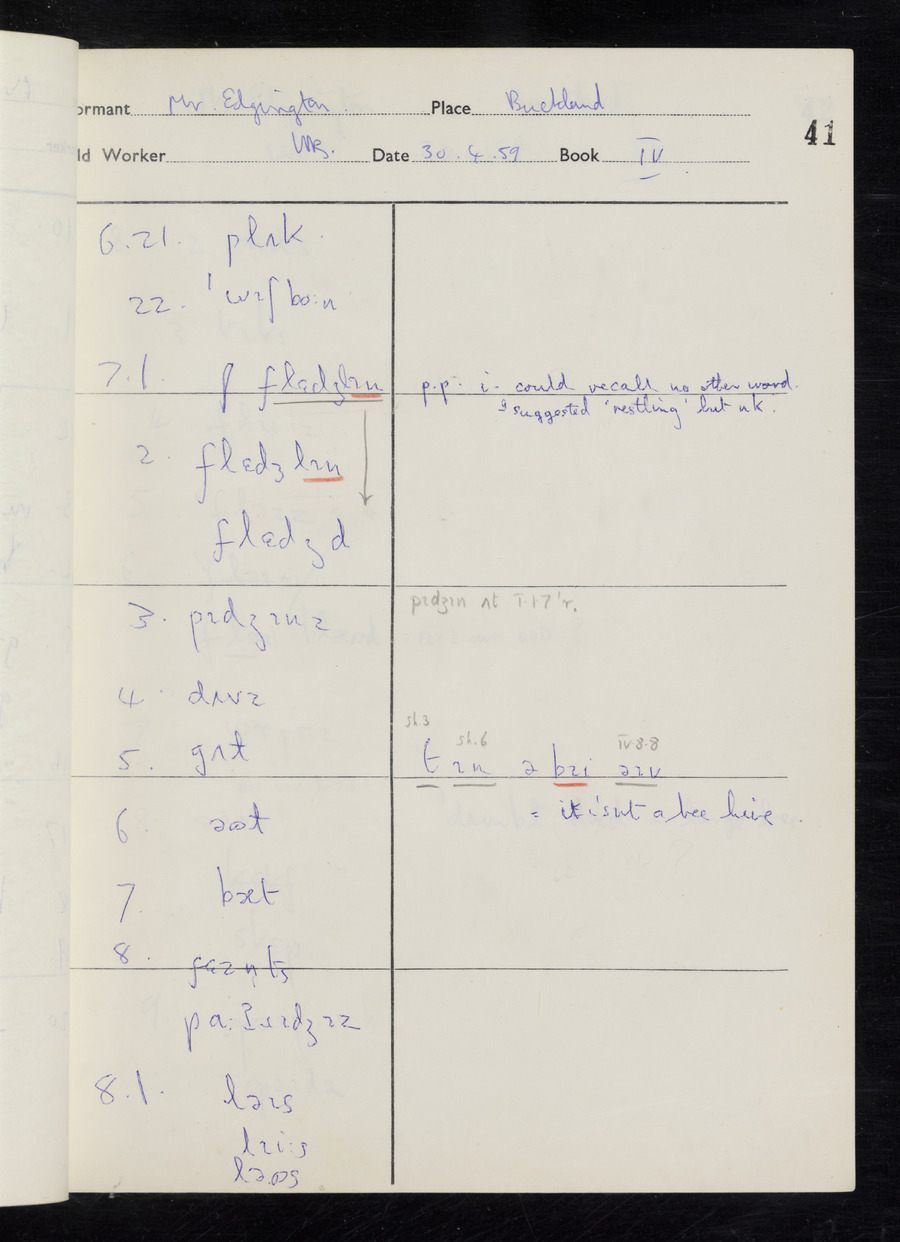 ormant Mr. Edgington Place Buckland
41
ld Worker WB. Date 30.4.59 Book IV
6.21. plʌk.
22. ˈwɪʃboːn
7.1. flɛdʒlɪn p.p: i. could recall no other word.
I suggested 'nestling' but nk.
2. flɛdʒlɪn
flɛdʒd
3. pɪdʒɪnz pɪdʒɪn at I.1.7 'r.
4. dʌvz
sh.3
sh.6 IV.8.8
5. gʌt t ɪn ə bɪi əɪv
= it isn't a bee hive.
6. əʊt
7. bæt
8. fɛznts
paːtɹɪdʒɪz
8.1. ləɪs
lɪiːs
ləʊs